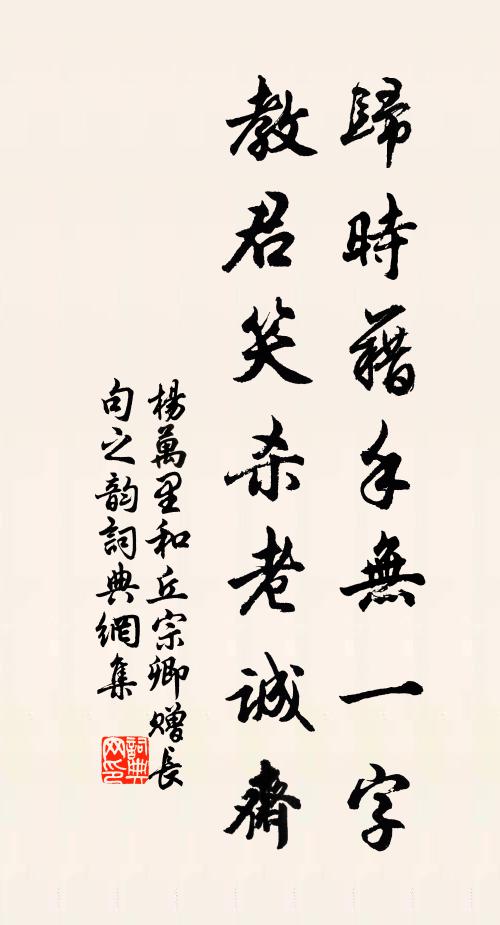 歸時藉手無一字
教君笑杀老誠齋
楊萬里和丘宗卿贈長
句之韵詞典網集
詞典网印